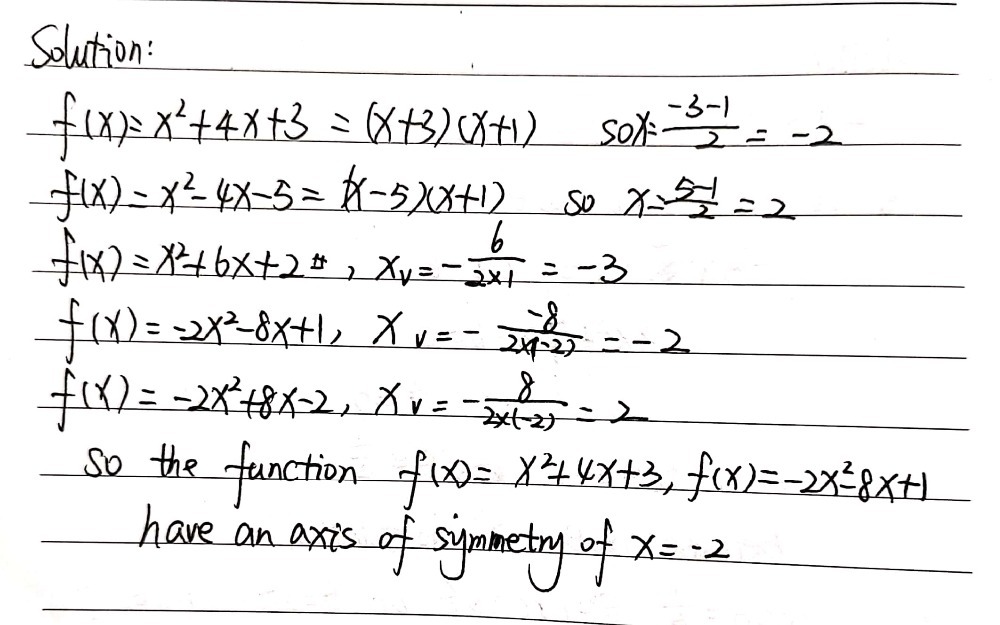 Solution:
f(x)=x²+4x+3 =(x+3)(x+1) so x=\frac{-3-1}{2}=-2
f(x)=x²-4x-5=(x-5)(x+1) so x=\frac{5-1}{2}=2
f(x)=x²+6x+2, x_v=-\frac{6}{2×1}=-3
f(x)=-2x²-8x+1, x_v=-\frac{-8}{2×(-2)}=-2
f(x)=-2x²+8x-2, x_v=-\frac{8}{2×(-2)}=2
so the function f(x)=x²+4x+3, f(x)=-2x²-8x+1
have an axis of symmetry of x=-2